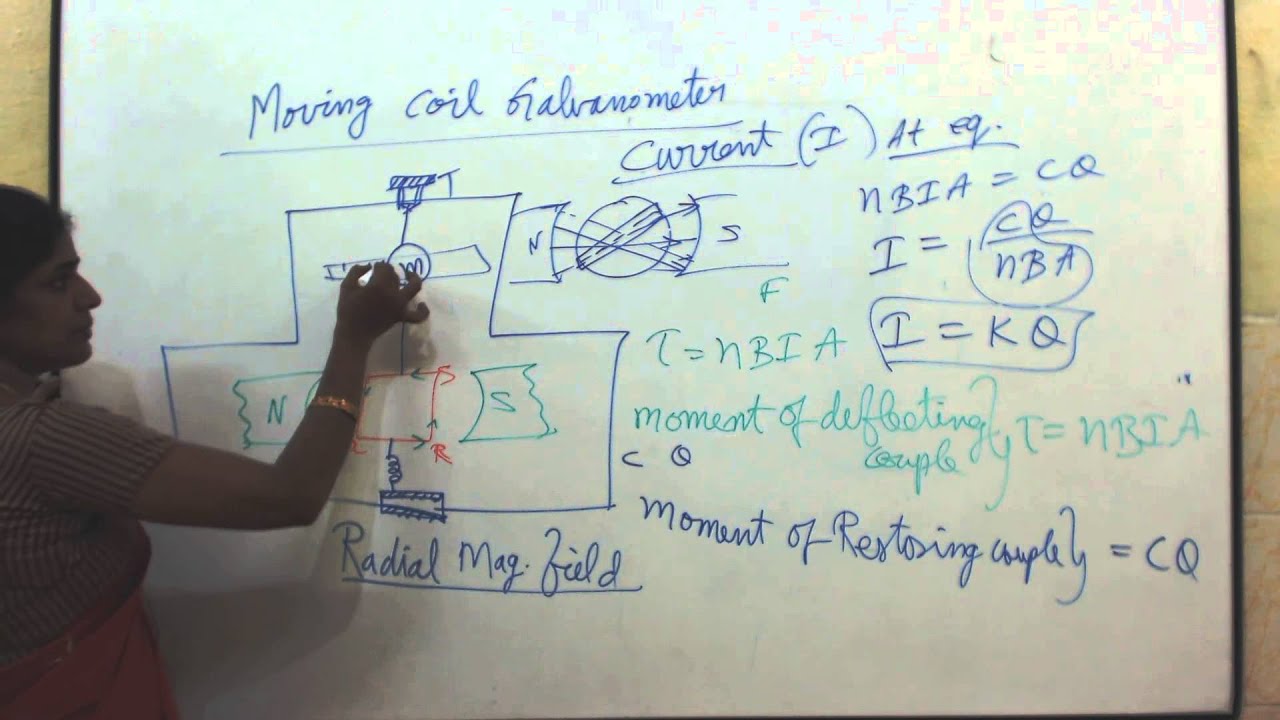 Moving Coil Galvanometer
Current (I)
At eq.
nBIA = CQ
I = CQ
nBA
I = KQ
T
N S
m
F
τ = nBIA
N S
S
R
moment of deflecting
couple } τ = nBIA
C Q
Moment of Restoring couple } = CQ
Radial Mag. field